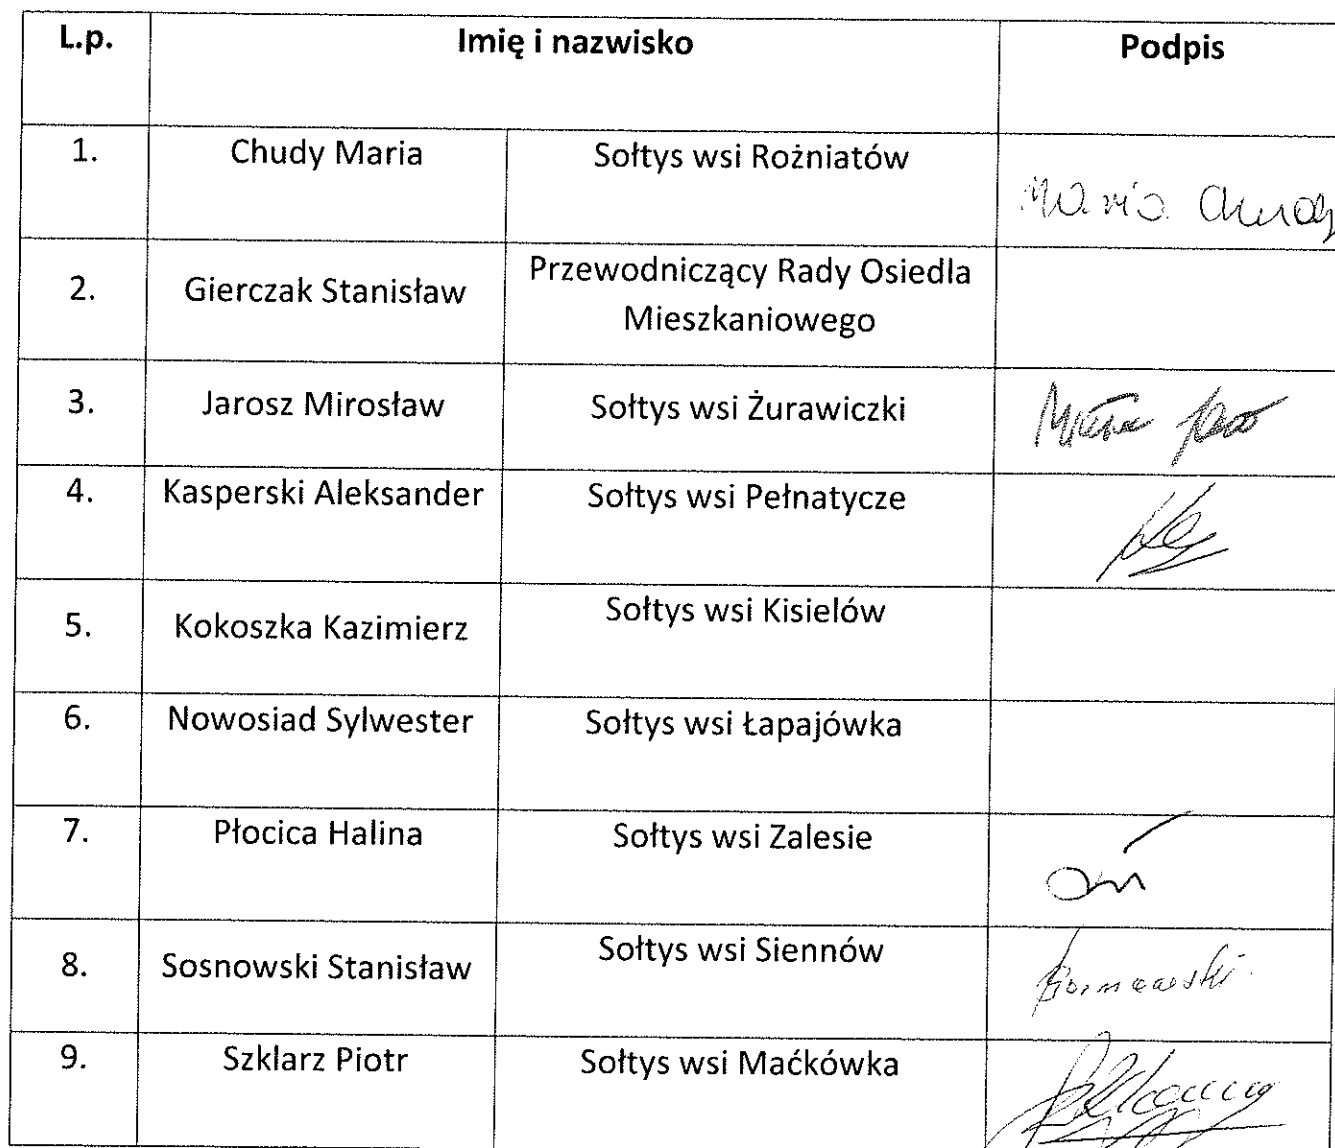 L.p. Imię i nazwisko Podpis
1. Chudy Maria Sołtys wsi Rożniatów
Maria Chudy
2. Gierczak Stanisław Przewodniczący Rady Osiedla
Mieszkaniowego
3. Jarosz Mirosław Sołtys wsi Żurawiczki
4. Kasperski Aleksander Sołtys wsi Pełnatycze
5. Kokoszka Kazimierz Sołtys wsi Kisielów
6. Nowosiad Sylwester Sołtys wsi Łapajówka
7. Płocica Halina Sołtys wsi Zalesie
8. Sosnowski Stanisław Sołtys wsi Siennów
9. Szklarz Piotr Sołtys wsi Maćkówka